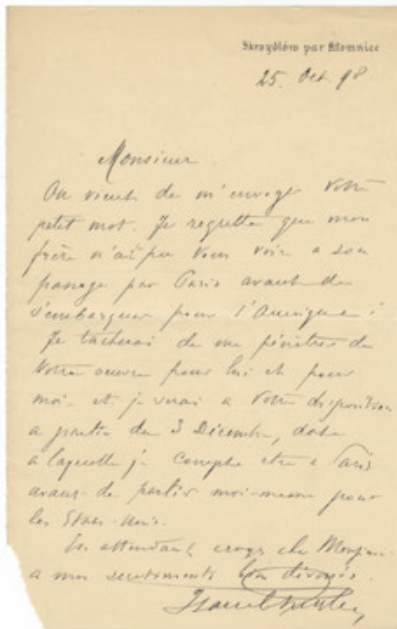 Skrzydlów par Klomnice
25. Oct. 98
Monsieur
On vient de m'envoyer votre
petit mot. Je regrette que mon
frère n'ait pu vous voir a son
passage par Paris avant de
s'embarquer pour l'Amerique!
Je tacherai de me pénétrer de
votre oeuvre pour lui et pour
moi et je serai a votre disposition
a partir du 3 Décembre, date
a laquelle je compte etre a Paris
avant de partir moi-meme pour
les Etats-Unis.
En attendant, croyez cher Monsieur
a mes sentiments bien dévoués.